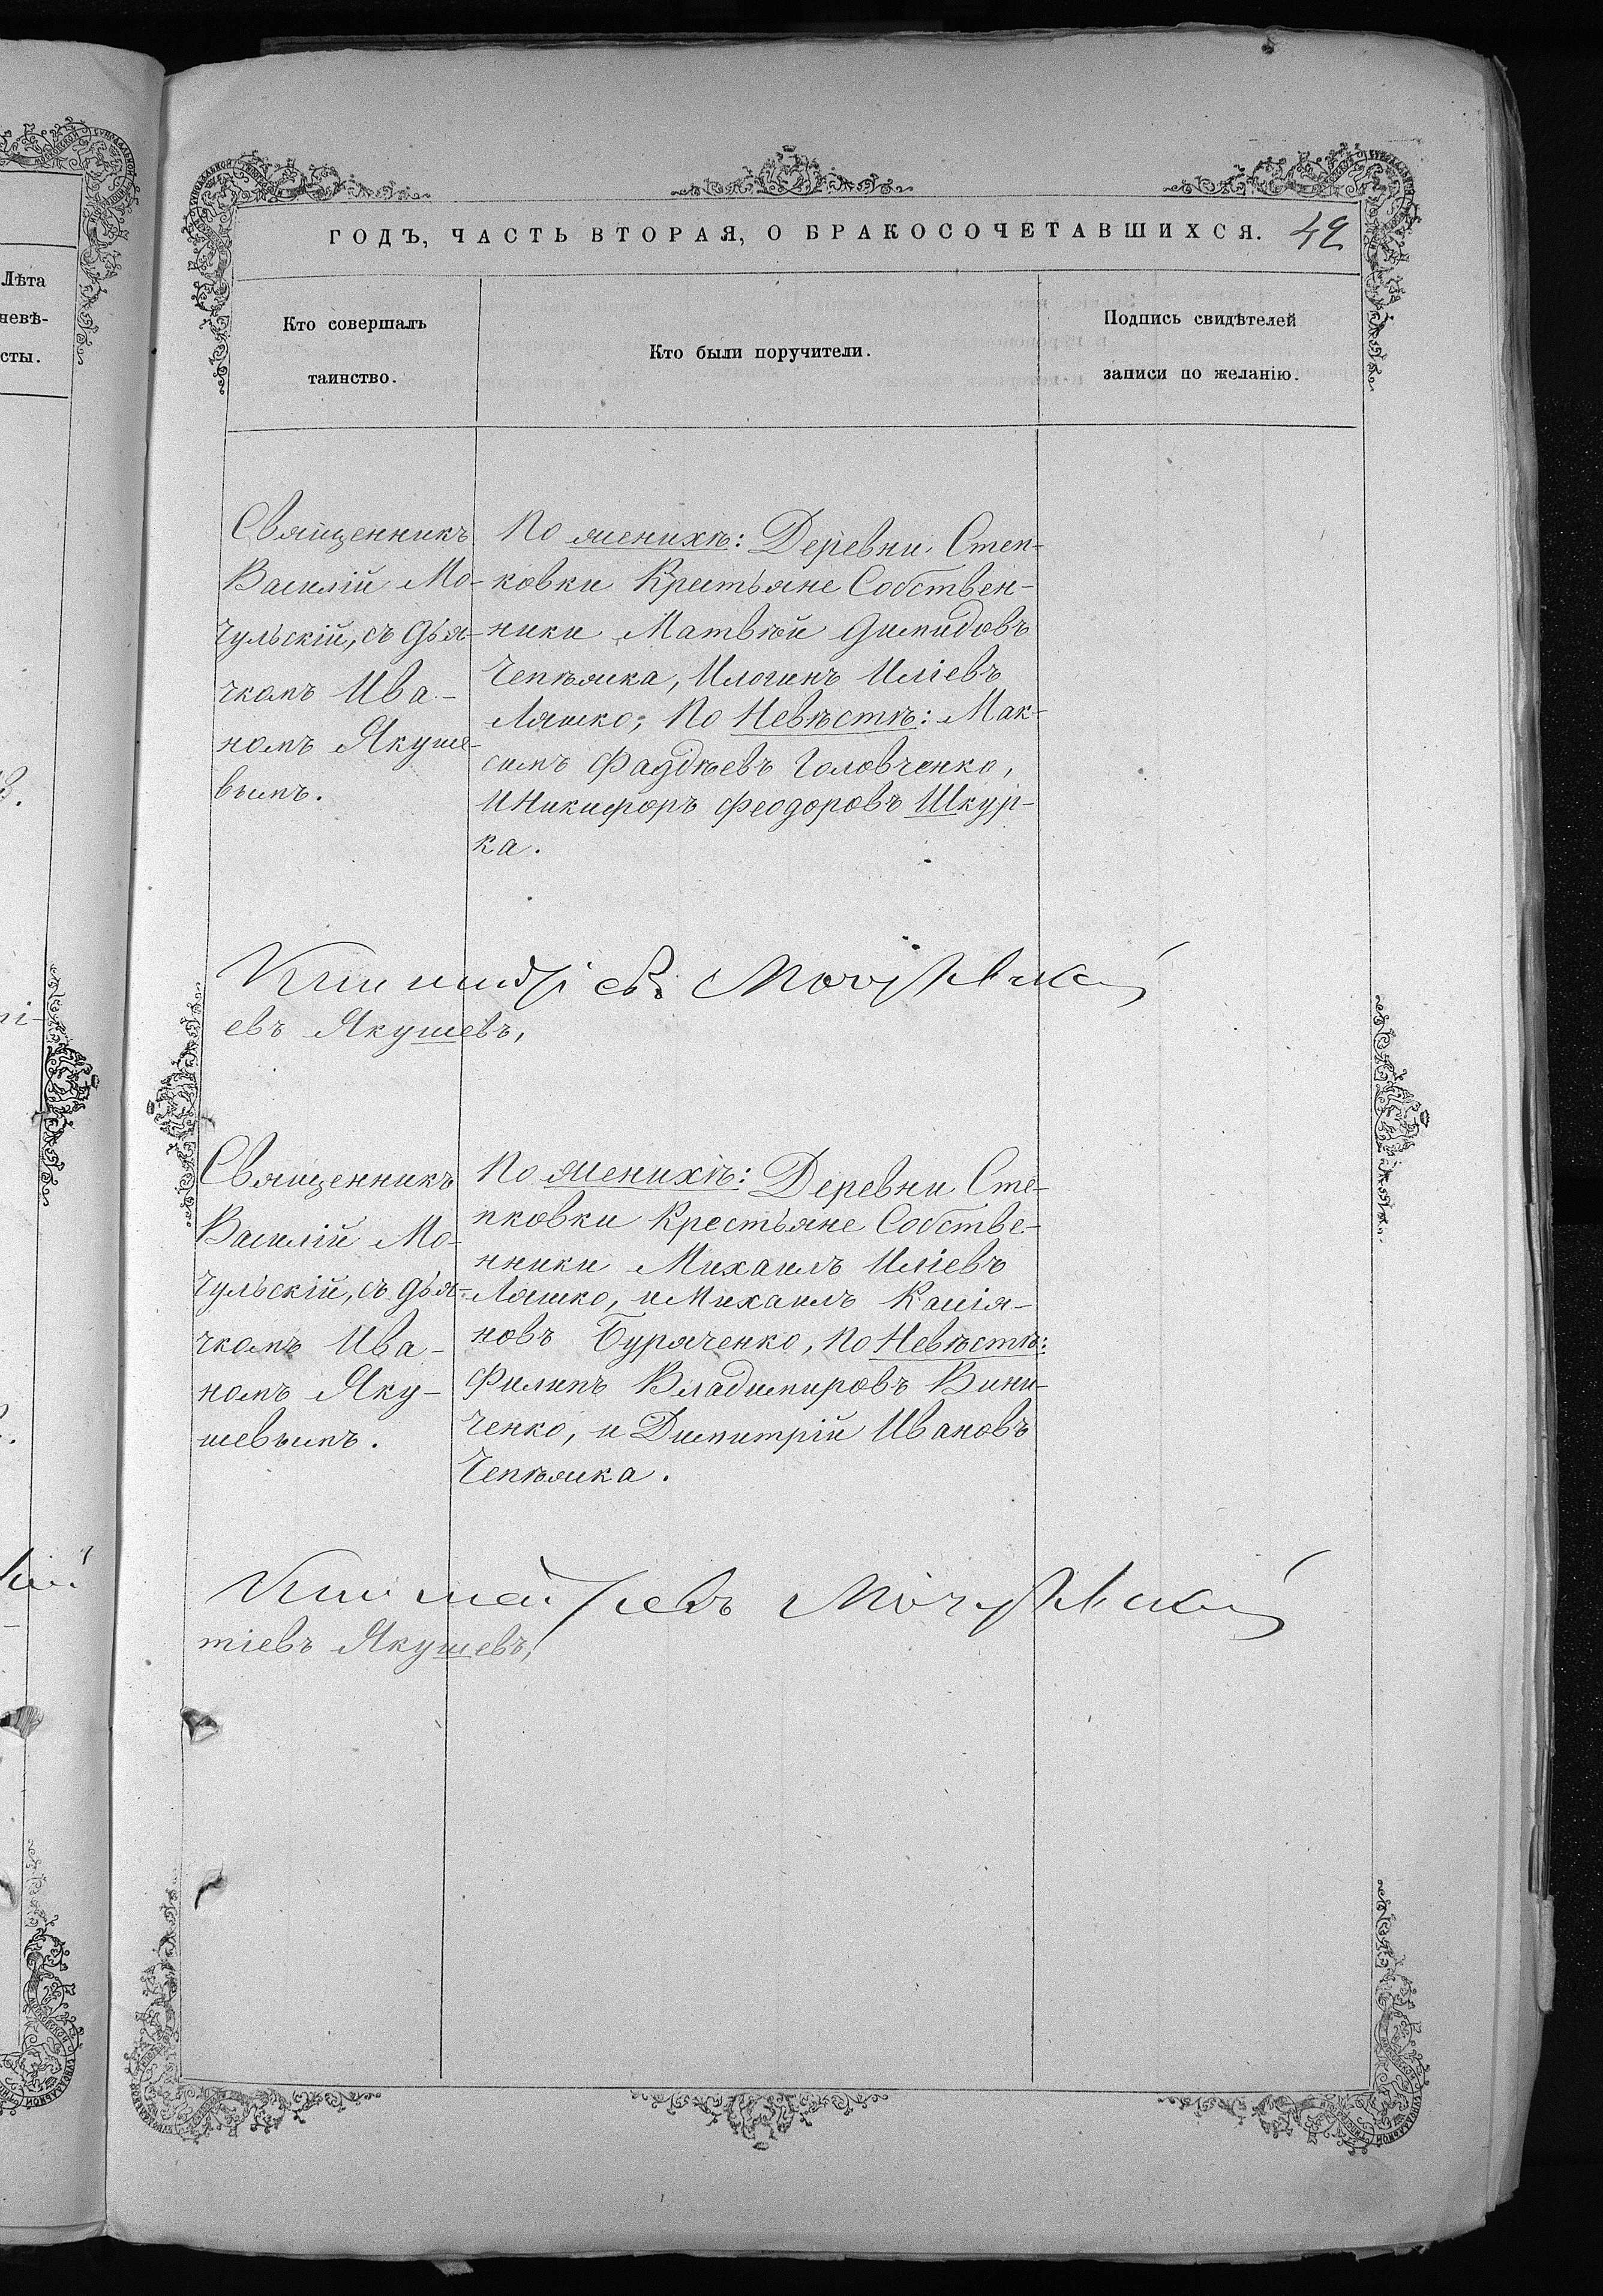 Лѣта
невѣ-
сты.
ГОДЪ, ЧАСТЬ ВТОРАЯ, О БРАКОСОЧЕТАВШИХСЯ. 42
Кто совершалъ
таинство.
Кто были поручители.
Подпись свидѣтелей
записи по желанію.
Священникъ
Василій Мо-
чульскій, съ Дья-
чкомъ Ива-
номъ Якуше-
вымъ.
По женихѣ: Деревни Степ-
ковки Крестьяне Собствен-
ники Матвѣй Димидовъ
Чепѣжка, Илогинъ Иліевъ
Ляшко; По Невѣстѣ: Мак-
симъ Фаддѣевъ Головченко,
и Никифоръ Феодоровъ Шкур-
ка.
Мочульскій
евъ Якушевъ,
Священникъ
Василій Мо-
чульскій, съ Дья-
чкомъ Ива-
номъ Яку-
шевымъ.
По женихѣ: Деревни Сте-
пковки Крестьяне Собстве-
нники Михаилъ Иліевъ
Ляшко, и Михаилъ Касія-
новъ Буряченко, По Невѣстѣ:
Филипъ Владимировъ Вини-
ченко, и Димитрій Ивановъ
Чепѣжка.
Мочульскій
тіевъ Якушевъ,